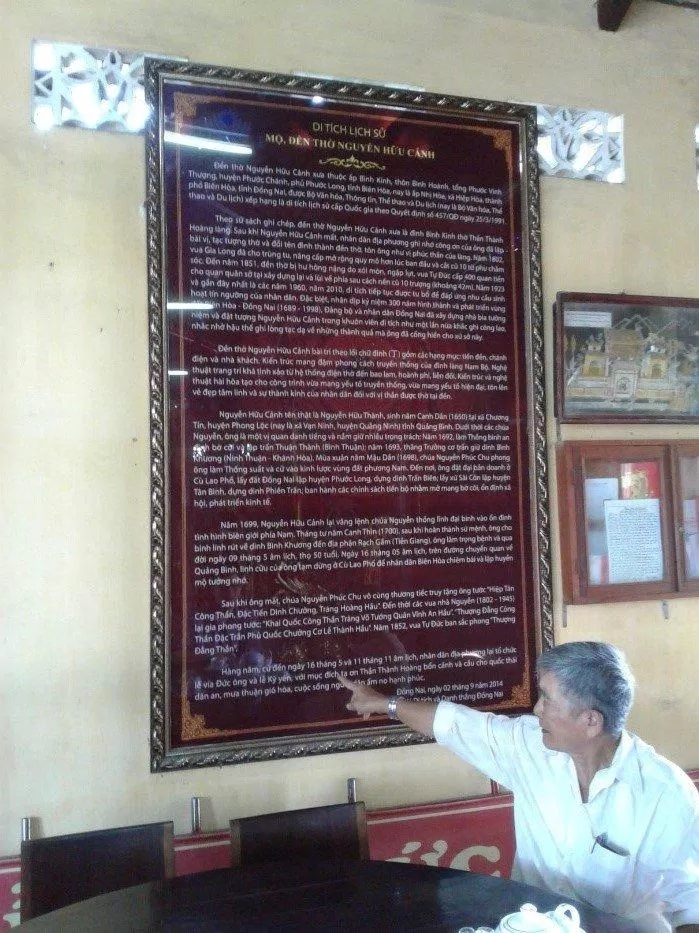 DI TÍCH LỊCH SỬ
MỘ, ĐỀN THỜ NGUYỄN HỮU CẢNH
Đền thờ Nguyễn Hữu Cảnh xưa thuộc ấp Bình Kính, thôn Bình Hoành, tổng Phước Vinh
Thượng, huyện Phước Chánh, phủ Phước Long, tỉnh Biên Hòa, nay là ấp Nhị Hòa, xã Hiệp Hòa, thành
phố Biên Hòa, tỉnh Đồng Nai, được Bộ Văn hóa, Thông tin, Thể thao và Du lịch (nay là Bộ Văn hóa, Thể
thao và Du lịch) xếp hạng là di tích lịch sử cấp Quốc gia theo Quyết định số 457/QĐ ngày 25/3/1991.
Theo sử sách ghi chép, đền thờ Nguyễn Hữu Cảnh xưa là đình Bình Kính thờ Thần Thành
Hoàng làng. Sau khi Nguyễn Hữu Cảnh mất, nhân dân địa phương ghi nhớ công ơn của ông đã lập
bài vị, tạc tượng thờ và đổi tên đình thành đền thờ, tôn ông như vị phúc thần của làng. Năm 1802,
vua Gia Long đã cho trùng tu, nâng cấp mở rộng quy mô hơn lúc ban đầu và cắt cử 10 từ phu chăm
sóc. Đến năm 1851, đền thờ bị hư hỏng nặng do xói mòn, ngập lụt, vua Tự Đức cấp 400 quan tiền
cho quan quân sở tại xây dựng lại và lùi về phía sau cách nền cũ 10 trượng (khoảng 42m). Năm 1923
và gần đây nhất là các năm 1960, năm 2010, di tích tiếp tục được tu bổ để đáp ứng nhu cầu sinh
hoạt tín ngưỡng của nhân dân. Đặc biệt, nhân dịp kỷ niệm 300 năm hình thành và phát triển vùng
Biên Hòa - Đồng Nai (1689 - 1998), Đảng bộ và nhân dân Đồng Nai đã xây dựng nhà bia tưởng
niệm và đặt tượng Nguyễn Hữu Cảnh trong khuôn viên di tích như một lần nữa khắc ghi công lao,
nhắc nhở hậu thế ghi lòng tạc dạ về những thành quả mà ông đã cống hiến cho xứ sở này.
Đền thờ Nguyễn Hữu Cảnh bài trí theo lối chữ đinh gồm các hạng mục: tiền đền, chánh
điện và nhà khách. Kiến trúc mang đậm phong cách truyền thống của đình làng Nam Bộ. Nghệ
thuật trang trí khá tinh xảo từ hệ thống điện thờ đến bao lam, hoành phi, liễn đối. Kiến trúc và nghệ
thuật hài hòa tạo cho công trình vừa mang yếu tố truyền thống, vừa mang yếu tố hiện đại, tôn lên
vẻ đẹp tâm linh và sự thành kính của nhân dân đối với vị thần được thờ tại đền.
Nguyễn Hữu Cảnh tên thật là Nguyễn Hữu Thành, sinh năm Canh Dần (1650) tại xã Chương
Tín, huyện Phong Lộc (nay là xã Vạn Ninh, huyện Quảng Ninh) tỉnh Quảng Bình. Dưới thời các chúa
Nguyễn, ông là một vị quan danh tiếng và nắm giữ nhiều trọng trách: Năm 1692, làm Thống binh an
định bờ cõi và lập trấn Thuận Thành (Bình Thuận); năm 1693, thăng Trưởng cơ trấn giữ dinh Bình
Khương (Ninh Thuận - Khánh Hòa). Mùa xuân năm Mậu Dần (1698), chúa Nguyễn Phúc Chu phong
ông làm Thống suất và cử vào kinh lược vùng đất phương Nam. Đến nơi, ông đặt đại bản doanh ở
Cù Lao Phố, lấy đất Đồng Nai lập huyện Phước Long, dựng dinh Trấn Biên; lấy xứ Sài Gòn lập huyện
Tân Bình, dựng dinh Phiên Trấn; ban hành các chính sách tiến bộ nhằm mở mang bờ cõi, ổn định xã
hội, phát triển kinh tế.
Năm 1699, Nguyễn Hữu Cảnh lại vâng lệnh chúa Nguyễn thống lĩnh đại binh vào ổn định
tình hình biên giới phía Nam. Tháng tư năm Canh Thìn (1700), sau khi hoàn thành sứ mệnh, ông cho
binh lính rút về dinh Bình Khương đến địa phận Rạch Gầm (Tiền Giang), ông lâm trọng bệnh và qua
đời ngày 09 tháng 5 âm lịch, thọ 50 tuổi. Ngày 16 tháng 05 âm lịch, trên đường chuyển quan về
Quảng Bình, linh cữu của ông tạm dừng ở Cù Lao Phố để nhân dân Biên Hòa chiêm bái và lập huyền
mộ tưởng nhớ.
Sau khi ông mất, chúa Nguyễn Phúc Chu vô cùng thương tiếc truy tặng ông tước "Hiệp Tán
Công Thần, Đặc Tiến Dinh Chưởng, Tráng Hoàng Hầu". Đến thời các vua nhà Nguyễn (1802 - 1945)
lại gia phong tước: "Khai Quốc Công Thần Tráng Võ Tướng Quân Vĩnh An Hầu". "Thượng Đẳng Công
Thần Đặc Trấn Phủ Quốc Chưởng Cơ Lễ Thành Hầu". Năm 1852, vua Tự Đức ban sắc phong "Thượng
Đẳng Thần".
Hàng năm, cứ đến ngày 16 tháng 5 và 11 tháng 11 âm lịch, nhân dân địa phương lại tổ chức
lễ vía Đức ông và lễ Kỳ yên, với mục đích tạ ơn Thần Thành Hoàng bổn cảnh và cầu cho quốc thái
dân an, mưa thuận gió hòa, cuộc sống người dân ấm no hạnh phúc.
Đồng Nai, ngày 02 tháng 9 năm 2014
Di tích và Danh thắng Đồng Nai
ỨC